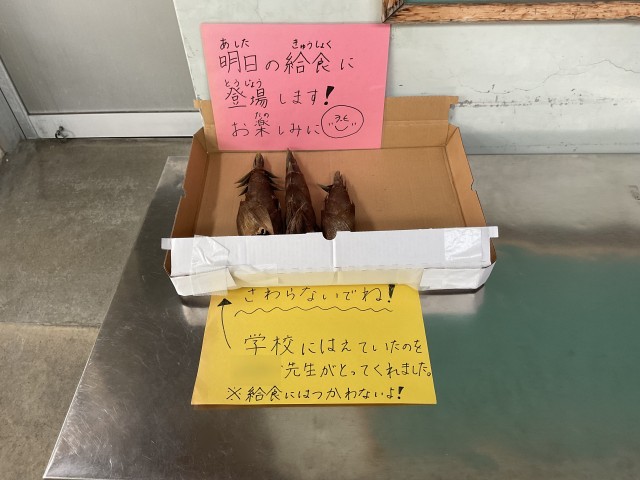 あした きゅうしょく
明日の給食に
とうじょう
登場します!
たの
お楽しみに
さわらないでね!
学校にはえていたのを
先生がとってくれました。
※給食にはつかわないよ!